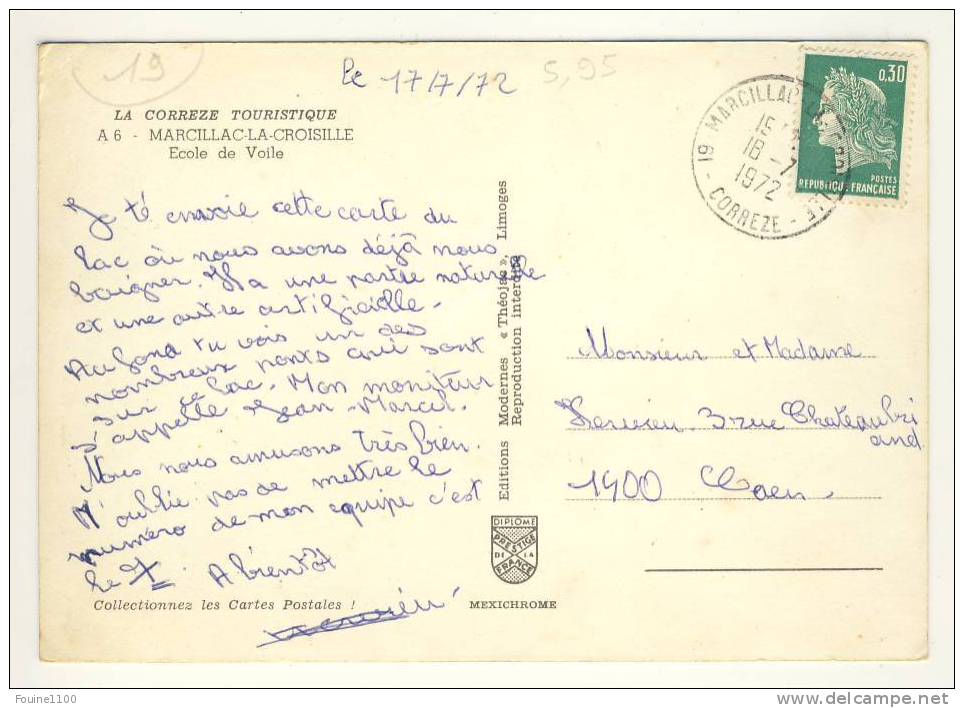 19
le 17/7/72
5,95
LA CORREZE TOURISTIQUE
A 6 - MARCILLAC-LA-CROISILLE
Ecole de Voile
Je té envoie cette carte du
lac où nous avons déjà nous
baigner. Il a une partie naturelle
et une autre artificielle.
Au fond tu vois un des
nombreux ponts qui sont
sur ce lac. Mon moniteur
s'appelle Jean-Marcel.
Nous nous amusons très bien.
N'oublie pas de mettre le
numéro de mon equipe c'est
le 7. A bientôt
Collectionnez les Cartes Postales !
Editions Modernes « Théojac », Limoges
Reproduction interdite
DIPLOME
PRESTIGE
DE LA
FRANCE
MEXICHROME
0,30
POSTES
REPUBLIQUE FRANÇAISE
19 MARCILLAC-LA-CROISILLE
15
18-7
1972
CORREZE
Monsieur et Madame
3 rue Chateaubri
and
1400 Caen
Fouine1100
www.delcampe.net